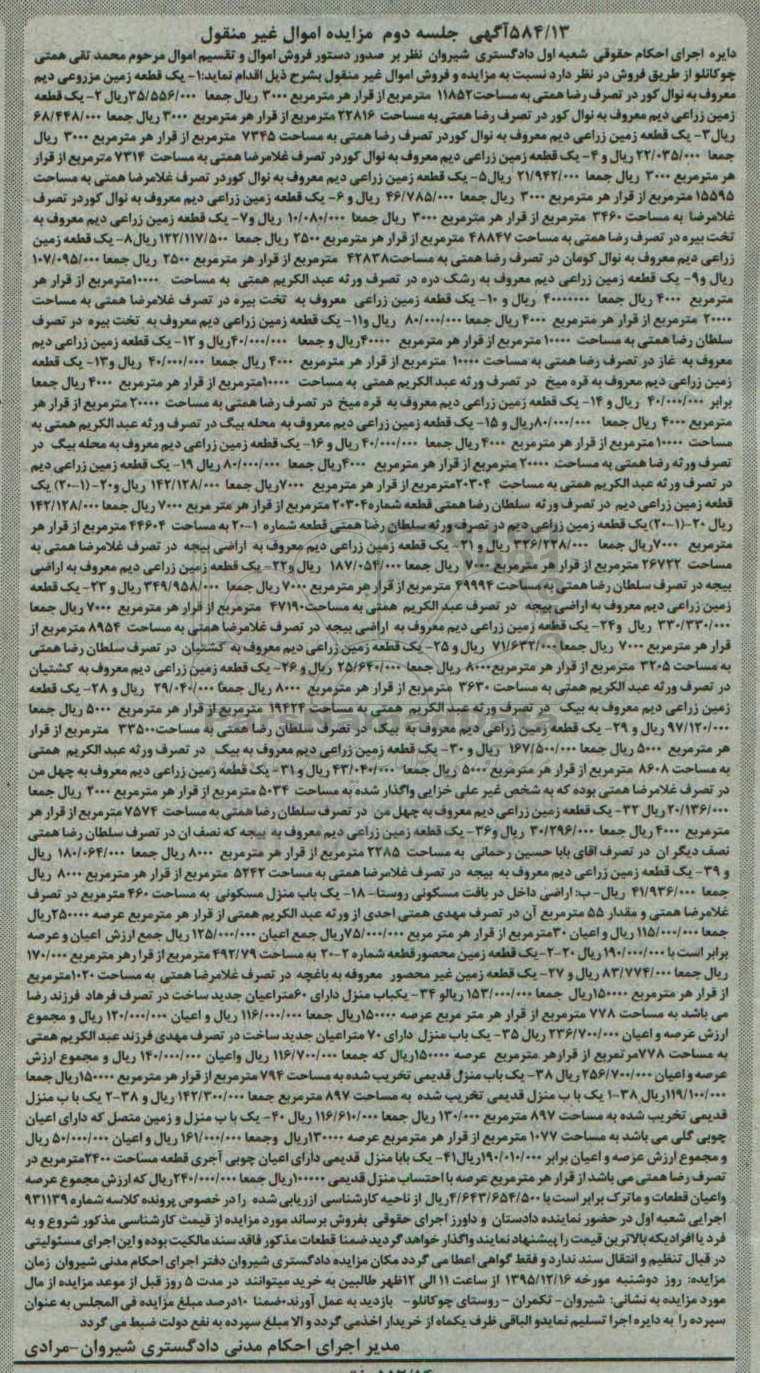 ۵۸۴/۱۳آگهی جلسه دوم مزایده اموال غیر منقول
دایره اجرای احکام حقوقی شعبه اول دادگستری شیروان نظر بر صدور دستور فروش اموال و تقسیم اموال مرحوم محمد تقی همتی
چوکانلو از طریق فروش در نظر دارد نسبت به مزایده و فروش اموال غیر منقول بشرح ذیل اقدام نماید:۱- یک قطعه زمین مزروعی دیم
معروف به نوال کور در تصرف رضا همتی به مساحت۱۱۸۵۲ مترمربع از قرار هر مترمربع ۳۰۰۰ ریال جمعا ۳۵/۵۵۶/۰۰۰ریال ۲- یک قطعه
زمین زراعی دیم معروف به نوال کور در تصرف رضا همتی به مساحت ۲۲۸۱۶ مترمربع از قرار هر مترمربع ۳۰۰۰ ریال جمعا ۶۸/۴۴۸/۰۰۰
ریال۳- یک قطعه زمین زراعی دیم معروف به نوال کوردر تصرف رضا همتی به مساحت ۷۳۴۵ مترمربع از قرار هر مترمربع ۳۰۰۰ ریال
جمعا ۲۲/۰۳۵/۰۰۰ ریال و ۴- یک قطعه زمین زراعی دیم معروف به نوال کوردر تصرف غلامرضا همتی به مساحت ۷۳۱۴ مترمربع از قرار
هر مترمربع ۳۰۰۰ ریال جمعا ۲۱/۹۴۲/۰۰۰ ریال۵- یک قطعه زمین زراعی دیم معروف به نوال کوردر تصرف غلامرضا همتی به مساحت
۱۵۵۹۵ مترمربع از قرار هر مترمربع ۳۰۰۰ ریال جمعا ۴۶/۷۸۵/۰۰۰ ریال و ۶- یک قطعه زمین زراعی دیم معروف به نوال کوردر تصرف
غلامرضا به مساحت ۳۴۶۰ مترمربع از قرار هر مترمربع ۳۰۰۰ ریال جمعا ۱۰/۰۸۰/۰۰۰ ریال و۷- یک قطعه زمین زراعی دیم معروف به
تخت بیره در تصرف رضا همتی به مساحت ۴۸۸۴۷ مترمربع از قرار هر مترمربع ۲۵۰۰ ریال جمعا ۱۲۲/۱۱۷/۵۰۰ ریال۸- یک قطعه زمین
زراعی دیم معروف به نوال کومان در تصرف رضا همتی به مساحت۴۲۸۳۸ مترمربع از قرار هر مترمربع ۲۵۰۰ ریال جمعا ۱۰۷/۰۹۵/۰۰۰
ریال و۹- یک قطعه زمین زراعی دیم معروف به رشک دره در تصرف ورثه عبد الکریم همتی به مساحت ۱۰۰۰۰مترمربع از قرار هر
مترمربع ۴۰۰۰ ریال جمعا ۴۰۰۰۰۰۰۰ ریال و ۱۰- یک قطعه زمین زراعی معروف به تخت بیره در تصرف غلامرضا همتی به مساحت
۲۰۰۰۰ مترمربع از قرار هر مترمربع ۴۰۰۰ ریال جمعا ۸۰/۰۰۰/۰۰۰ ریال و۱۱- یک قطعه زمین زراعی دیم معروف به تخت بیره در تصرف
سلطان رضا همتی به مساحت ۱۰۰۰۰ مترمربع از قرار هر مترمربع ۴۰۰۰۰ریال و جمعا ۴۰/۰۰۰/۰۰۰ریال و ۱۲- یک قطعه زمین زراعی دیم
معروف به غاز در تصرف رضا همتی به مساحت ۱۰۰۰۰ مترمربع از قرار هر مترمربع ۴۰۰۰ ریال جمعا ۴۰/۰۰۰/۰۰۰ ریال و۱۳- یک قطعه
زمین زراعی دیم معروف به قره میخ در تصرف ورثه عبدالکریم همتی به مساحت ۱۰۰۰۰مترمربع از قرار هر مترمربع ۴۰۰۰ ریال جمعا
برابر ۴۰/۰۰۰/۰۰۰ ریال و ۱۴- یک قطعه زمین زراعی دیم معروف به قره میخ در تصرف رضا همتی به مساحت ۲۰۰۰۰ مترمربع از قرار هر
مترمربع ۴۰۰۰ ریال جمعا ۸۰/۰۰۰/۰۰۰ریال و ۱۵- یک قطعه زمین زراعی دیم معروف به محله بیگ در تصرف ورثه عبد الکریم همتی به
مساحت ۱۰۰۰۰ مترمربع از قرار هر مترمربع ۴۰۰۰ ریال جمعا ۴۰/۰۰۰/۰۰۰ ریال و ۱۶- یک قطعه زمین زراعی دیم معروف به محله بیگ در
تصرف ورثه رضا همتی به مساحت ۲۰۰۰۰ مترمربع از قرار هر مترمربع ۴۰۰۰ریال جمعا ۸۰/۰۰۰/۰۰۰ ریال ۱۹- یک قطعه زمین زراعی دیم
در تصرف ورثه عبد الکریم همتی به مساحت ۲۰۳۰۴مترمربع از قرار هر مترمربع ۷۰۰۰ریال جمعا ۱۴۲/۱۲۸/۰۰۰ ریال و۲۰-(۱-۲۰) یک
قطعه زمین زراعی دیم در تصرف ورثه سلطان رضا همتی قطعه شماره۲۰۳۰۴ مترمربع از قرار هر متر مربع ۷۰۰۰ ریال جمعا ۱۴۲/۱۲۸/۰۰۰
ریال ۲۰-(۱-۲۰) یک قطعه زمین زراعی دیم در تصرف ورثه سلطان رضا همتی قطعه شماره ۱-۲۰ به مساحت ۴۴۶۰۴ مترمربع از قرار هر
مترمربع ۷۰۰۰ریال جمعا ۳۲۶/۲۳۸/۰۰۰ ریال و ۲۱- یک قطعه زمین زراعی دیم معروف به اراضی بیجه در تصرف غلامرضا همتی به
مساحت ۲۶۷۲۲ مترمربع از قرار هر مترمربع ۷۰۰۰ ریال جمعا ۱۸۷/۰۵۴/۰۰۰ ریال و۲۲- یک قطعه زمین زراعی دیم معروف به اراضی
بیجه در تصرف سلطان رضا همتی به مساحت ۴۹۹۹۴ مترمربع از قرار هر مترمربع ۷۰۰۰ ریال جمعا ۳۴۹/۹۵۸/۰۰۰ ریال و ۲۳- یک قطعه
زمین زراعی دیم معروف به اراضی بیجه در تصرف عبد الکریم همتی به مساحت۴۷۱۹۰ مترمربع از قرار هر مترمربع ۷۰۰۰ ریال جمعا
۳۳۰/۳۳۰/۰۰۰ ریال و۲۴- یک قطعه زمین زراعی دیم معروف به اراضی بیجه در تصرف غلامرضا همتی به مساحت ۸۹۵۴ مترمربع از
قرار هر مترمربع ۷۰۰۰ ریال جمعا ۷۱/۶۳۲/۰۰۰ ریال و ۲۵- یک قطعه زمین زراعی دیم معروف به کشتیان در تصرف سلطان رضا همتی
به مساحت ۳۲۰۵ مترمربع از قرار هر مترمربع۸۰۰۰ ریال جمعا ۲۵/۶۴۰/۰۰۰ ریال و ۲۶- یک قطعه زمین زراعی دیم معروف به کشتیان
در تصرف ورثه عبد الکریم همتی به مساحت ۳۶۳۰ مترمربع از قرار هر مترمربع ۸۰۰۰ ریال جمعا ۲۹/۰۴۰/۰۰۰ ریال و ۲۸- یک قطعه
زمین زراعی دیم معروف به بیک در تصرف ورثه عبد الکریم همتی به مساحت ۱۹۴۲۴ مترمربع از قرار هر مترمربع ۵۰۰۰ ریال جمعا
۹۷/۱۲۰/۰۰۰ ریال و ۲۹- یک قطعه زمین زراعی دیم معروف به بیک در تصرف سلطان رضا همتی به مساحت۳۳۵۰۰ مترمربع از قرار
هر مترمربع ۵۰۰۰ ریال جمعا ۱۶۷/۵۰۰/۰۰۰ ریال و ۳۰- یک قطعه زمین زراعی دیم معروف به بیک در تصرف ورثه عبد الکریم همتی
به مساحت ۸۶۰۸ مترمربع از قرار هر مترمربع ۵۰۰۰ ریال جمعا ۴۳/۰۴۰/۰۰۰ ریال و ۳۱- یک قطعه زمین زراعی دیم معروف به چهل من
در تصرف غلامرضا همتی بوده که به شخص غیر علی خزایی واگذار شده به مساحت ۵۰۳۴ مترمربع از قرار هر مترمربع ۲۰۰۰ ریال جمعا
۲۰/۱۳۶/۰۰۰ ریال ۳۲- یک قطعه زمین زراعی دیم معروف به چهل من در تصرف سلطان رضا همتی به مساحت ۷۵۷۴ مترمربع از قرار هر
مترمربع ۴۰۰۰ ریال جمعا ۳۰/۲۹۶/۰۰۰ ریال و۳۶- یک قطعه زمین زراعی دیم معروف به بیجه که نصف ان در تصرف سلطان رضا همتی
نصف دیگر ان در تصرف اقای بابا حسین رحمانی به مساحت ۲۲۸۵ مترمربع از قرار هر مترمربع ۸۰۰۰ ریال جمعا ۱۸۰/۰۶۴/۰۰۰ ریال
و ۳۹- یک قطعه زمین زراعی دیم معروف به بیجه در تصرف غلامرضا همتی به مساحت ۵۲۴۲ مترمربع از قرار هر مترمربع ۸۰۰۰ ریال
جمعا ۴۱/۹۳۶/۰۰۰ ریال- ب: اراضی داخل در بافت مسکونی روستا- ۱۸- یک باب منزل مسکونی به مساحت ۴۶۰ مترمربع در تصرف
غلامرضا همتی و مقدار ۵۵ مترمربع آن در تصرف مهدی همتی احدی از ورثه عبد الکریم همتی از قرار هر مترمربع عرصه ۲۵۰۰۰۰ریال
جمعا ۱۱۵/۰۰۰/۰۰۰ ریال و اعیان ۳۰مترمربع از قرار هر متر مربع ۷۵/۰۰۰/۰۰۰ریال جمع اعیان ۱۲۵/۰۰۰/۰۰۰ ریال جمع ارزش اعیان و عرصه
برابر است با ۱۹۰/۰۰۰/۰۰۰ریال ۲۰-۲-یک قطعه زمین محصورقطعه شماره ۲-۲۰ به مساحت ۴۹۲/۷۹ مترمربع از قرار هر مترمربع ۱۷۰/۰۰۰
ریال جمعا ۸۳/۷۷۴/۰۰۰ ریال و ۲۷- یک قطعه زمین غیر محصور معروفه به باغچه در تصرف غلامرضا همتی به مساحت ۱۰۲۰مترمربع
از قرار هر مترمربع ۱۵۰۰۰۰ریال جمعا ۱۵۳/۰۰۰/۰۰۰ ریالو ۳۴- یکباب منزل دارای ۶۰متراعیان جدید ساخت در تصرف فرهاد فرزند رضا
می باشد به مساحت ۷۷۸ مترمربع از قرار هر متر مربع عرصه ۱۵۰۰۰۰ریال جمعا ۱۱۶/۰۰۰/۰۰۰ ریال و اعیان ۱۲۰/۰۰۰/۰۰۰ ریال و مجموع
ارزش عرصه و اعیان ۲۳۶/۷۰۰/۰۰۰ ریال ۳۵- یک باب منزل دارای ۷۰ متراعیان جدید ساخت در تصرف مهدی فرزند عبد الکریم همتی
به مساحت ۷۷۸مترمربع از قرارهر مترمربع عرصه ۱۵۰۰۰۰ریال که جمعا ۱۱۶/۷۰۰/۰۰۰ ریال واعیان ۱۴۰/۰۰۰/۰۰۰ ریال و مجموع ارزش
عرصه واعیان ۲۵۶/۷۰۰/۰۰۰ ریال ۳۸- یک باب منزل قدیمی تخریب شده به مساحت ۷۹۴ مترمربع از قرار هر مترمربع ۱۵۰۰۰۰ریال جمعا
۱۱۹/۱۰۰/۰۰۰ریال ۱-۳۸ یک با ب منزل قدیمی تخریب شده به مساحت ۸۹۷ مترمربع جمعا ۱۴۲/۳۰۰/۰۰۰ ریال و ۲-۳۸ یک با ب منزل
قدیمی تخریب شده به مساحت ۸۹۷ مترمربع ۱۳۰/۰۰۰ ریال جمعا ۱۱۶/۶۱۰/۰۰۰ ریال ۴۰- یک با ب منزل و زمین متصل که دارای اعیان
چوبی گلی می باشد به مساحت ۱۰۷۷ مترمربع از قرار هر مترمربع عرصه ۱۳۰۰۰۰ریال وجمعا ۱۶۱/۰۰۰/۰۰۰ ریال و اعیان ۵۰/۰۰۰/۰۰۰ ریال
و مجموع ارزش عرصه و اعیان برابر ۱۹۰/۰۱۰/۰۰۰ریال۴۱- یک بابا منزل قدیمی دارای اعیان چوبی آجری قطعه مساحت ۲۴۰۰مترمربع در
تصرف رضا همتی می باشد از قرار هر مترمربع عرصه با احتساب منزل قدیمی ۱۰۰۰۰۰ریال جمعا ۲۴۰/۰۰۰/۰۰۰ریال که ارزش مجموع عرصه
واعیان قطعات و ماترک برابر است با ۴/۶۴۳/۶۵۴/۵۰۰ریال از ناحیه کارشناسی ارزیابی شده را در خصوص پرونده کلاسه شماره ۹۳۱۱۳۹
اجرایی شعبه اول در حضور نماینده دادستان و داورز اجرای حقوقی بفروش برساند مورد مزایده از قیمت کارشناسی مذکور شروع و به
فرد یا افرادیکه بالاترین قیمت را پیشنهاد نمایند واگذار خواهد گردید ضمنا قطعات مذکور فاقد سند مالکیت بوده و این اجرای مسئولیتی
در قبال تنظیم و انتقال سند ندارد و فقط گواهی اعطا می گردد مکان مزایده دادگستری شیروان دفتر اجرای احکام مدنی شیروان زمان
مزایده: روز دوشنبه مورخه ۱۳۹۵/۱۲/۱۶ از ساعت ۱۱ الی ۱۲ظهر طالبین به خرید میتوانند در مدت ۵ روز قبل از موعد مزایده از مال
مورد مزایده به نشانی: شیروان- تکمران - روستای چوکانلو- بازدید به عمل آورند.ضمنا ۱۰درصد مبلغ مزایده فی المجلس به عنوان
سپرده را به دایره اجرا تسلیم نمایدو الباقی ظرف یکماه از خریدار اخذمی گردد و الا مبلغ سپرده به نفع دولت ضبط می گردد
مدیر اجرای احکام مدنی دادگستری شیروان-مرادی